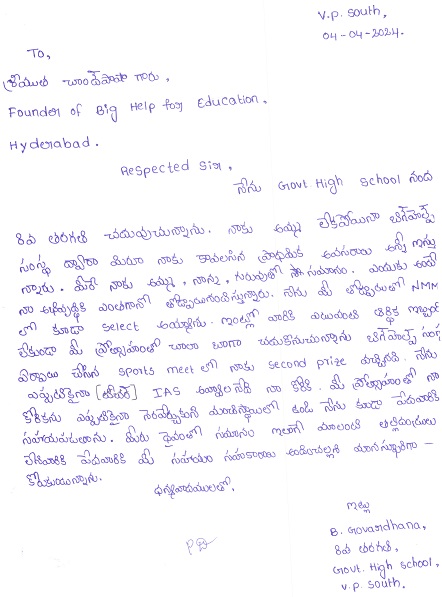 V.P. South,
04-04-2024.
To,
శ్రీయుత చాందిపాషా గారు,
Founder of Big Help for Education,
Hyderabad.
Respected Sir,
నేను Govt. High School నంద
8వ తరగతి చదువుచున్నాను. నాకు అమ్మ లేకపోయినా బిగ్‌హెల్ప్
సంస్థ ద్వారా మీరూ నాకు కావలసిన ప్రాథమిక అవసరాలు అన్ని ఇస్తు
న్నారు. మీరే నాకు అమ్మ, నాన్న, గురువుతో సమానం.
నా అభివృద్ధికి ఎంతగానో తోడ్పడుచున్నారు. నేను మీ తోడ్పాటుతో NMM
లో కూడా select అయ్యాను. ఇంట్లో వారికి ఎటువంటి ఆర్థిక ఇబ్బంది
లేకుండా మీ ప్రోత్సాహంతో చాలా బాగా చదుకొనుచున్నాను బిగ్‌హెల్ప్ సంస్థ
ఏర్పాటు చేసిన sports meet లో నాకు second prize వచ్చినది. నేను
ఎప్పటికైనా IAS అవ్వాలనేది నా కోరిక. మీ ప్రోత్సాహంతో నా
కోరికను ఎప్పటికైనా నెరవేర్చుకుని మంచిస్థాయిలో ఉండి నేను కూడా పేదవారికి
సహాయపడతాను. మీరు దైవంతో సమానం ఇలాగే మాలంటి తల్లిదండ్రులు
లేనివారికి పేదవారికి మీ సహాయ సహకారాలు అందించాల్సిందిగా
కోరుకుంటున్నాను.
ధన్యవాదములతో,
ఇట్లు
B. Govardhana,
8వ తరగతి,
Govt. High School,
V.P. South.